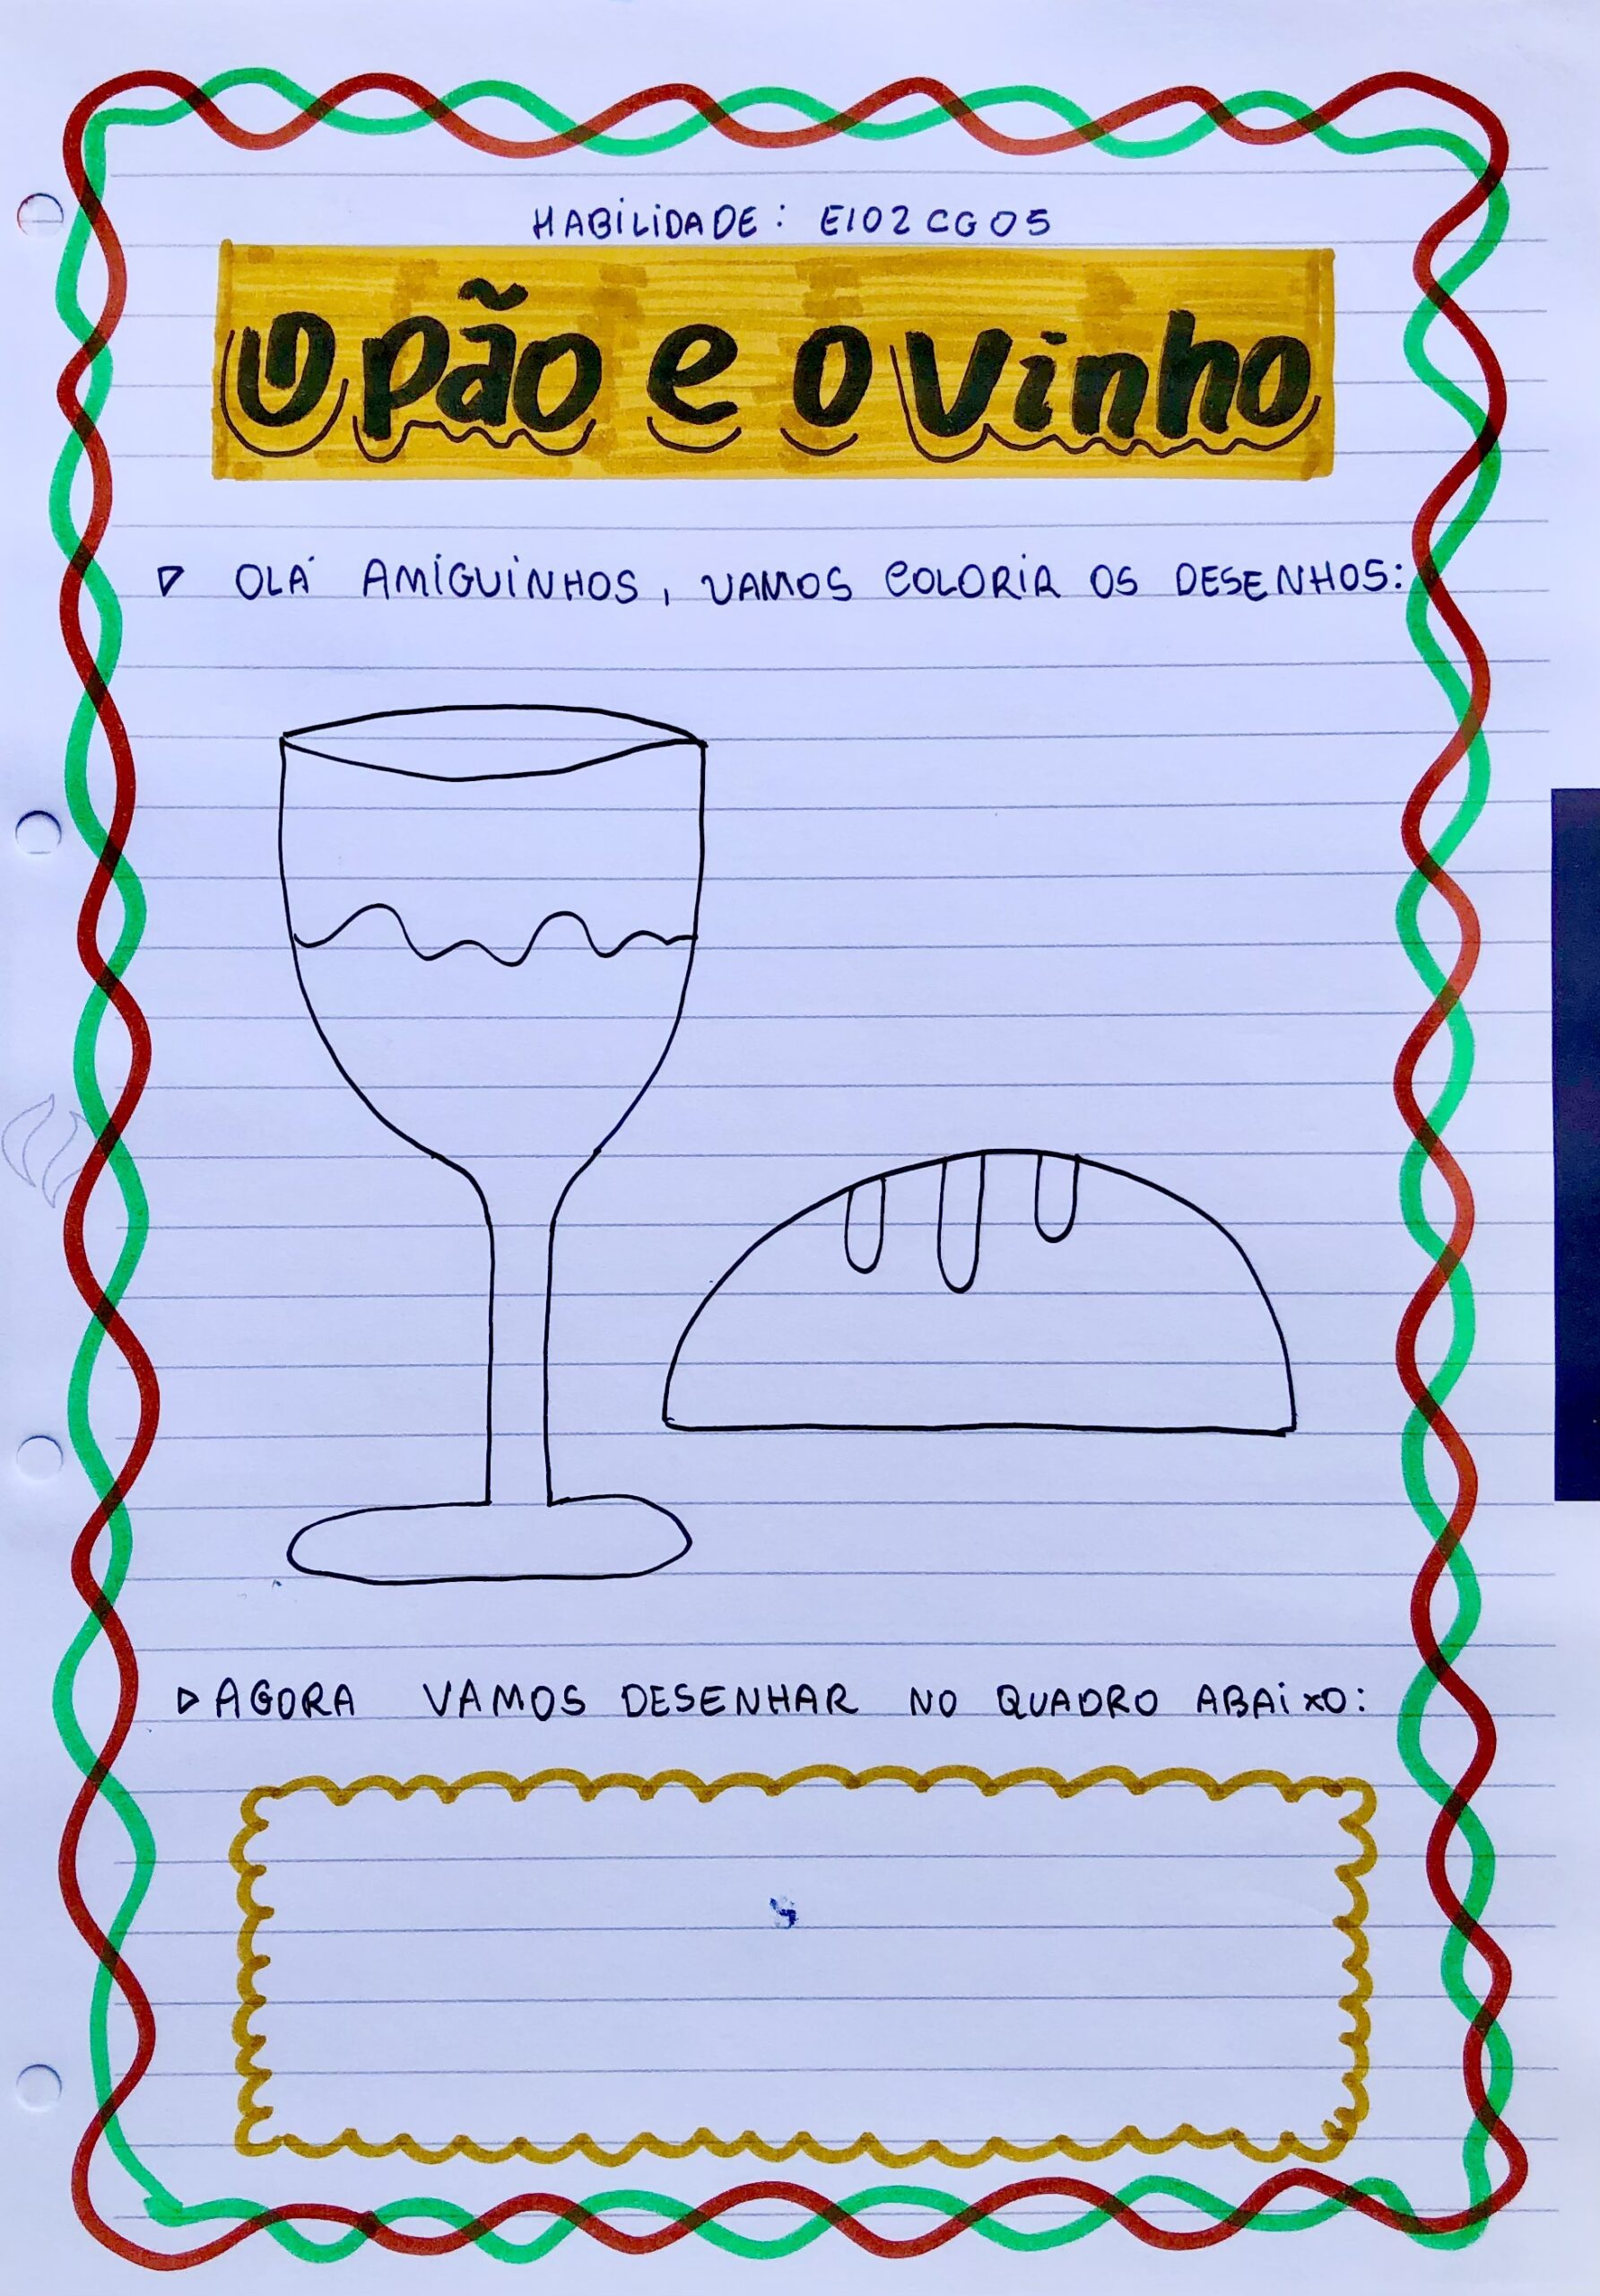 HABILIDADE: EI02CG05
O pão e o vinho
OLÁ AMIGUINHOS, VAMOS COLORIR OS DESENHOS:
AGORA VAMOS DESENHAR NO QUADRO ABAIXO: